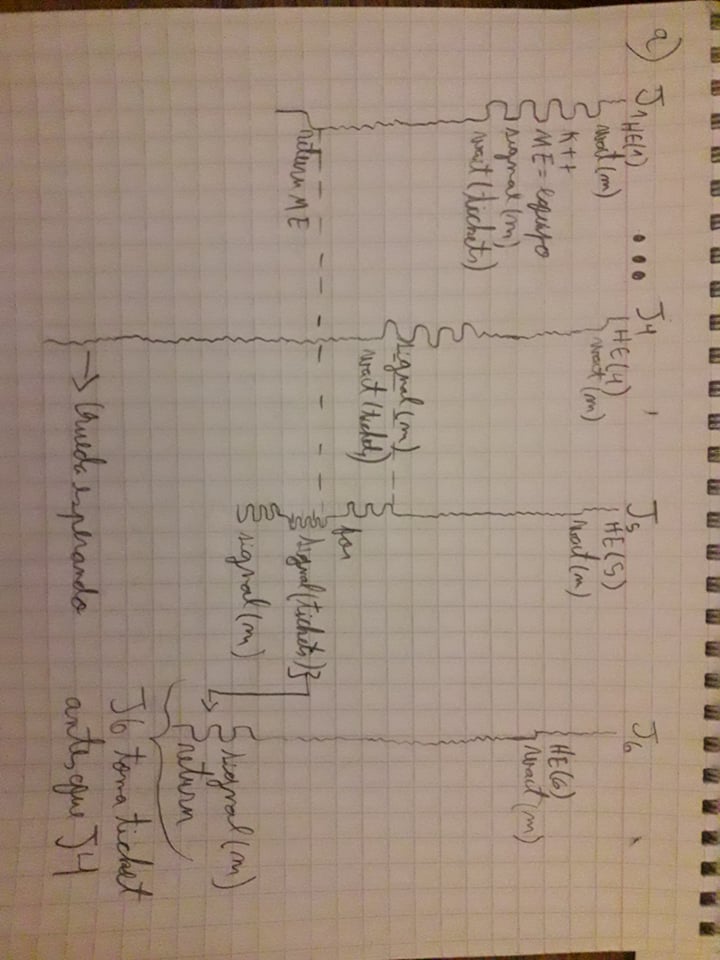 a)
J1
HE(1)
wait(m)
K++
ME = equipo
signal(m)
wait(tickets)
return ME
...
J4
HE(4)
wait(m)
signal(m)
wait(tickets)
→ Queda esperando
J5
HE(5)
wait(m)
for
signal(tickets)}
signal(m)
J6
HE(6)
wait(m)
signal(m)
return
J6 toma ticket
antes que J4